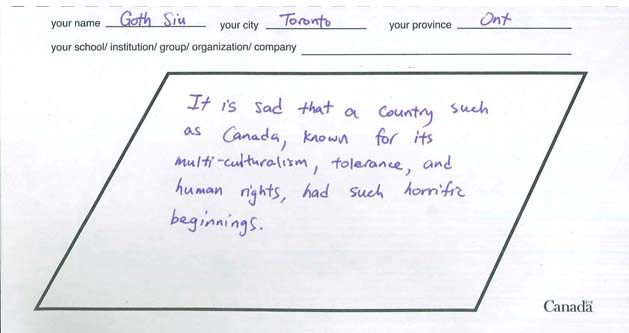 your name Goth Siu your city Toronto your province Ont
your school/ institution/ group/ organization/ company
It is sad that a country such
as Canada, known for its
multi-culturalism, tolerance, and
human rights, had such horrific
beginnings.
Canada